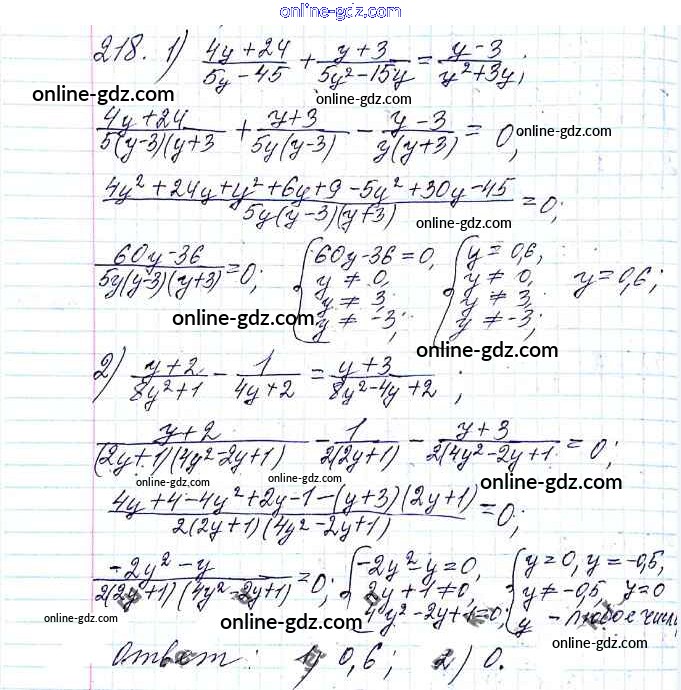 online-gdz.com
218. 1) (4y+24)/(5y-45) + (y+3)/(5y²-15y) = (y-3)/(y²+3y);
online-gdz.com
online-gdz.com
(4y+24)/(5(y-3)(y+3) + (y+3)/(5y(y-3)) - (y-3)/(y(y+3)) = 0;
online-gdz.com
(4y²+24y+y²+6y+9-5y²+30y-45)/(5y(y-3)(y+3)) = 0;
online-gdz.com
(60y-36)/(5y(y-3)(y+3)) = 0; { 60y-36=0, y≠0, y≠3; y≠-3; { y=0,6, y≠0, y≠3, y≠-3; y=0,6;
online-gdz.com
online-gdz.com
2) (y+2)/(8y²+1) - 1/(4y+2) = (y+3)/(8y²-4y+2);
(y+2)/((2y+1)(4y²-2y+1)) - 1/(2(2y+1)) - (y+3)/(2(4y²-2y+1) = 0;
online-gdz.com
online-gdz.com
online-gdz.com
(4y+4-4y²+2y-1-(y+3)(2y+1))/(2(2y+1)(4y²-2y+1)) = 0;
online-gdz.com
(-2y²-y)/(2(2y+1)(4y²-2y+1)) = 0; { -2y²-y=0, 2y+1≠0, 4y²-2y+1=0; { y=0, y=-0,5, y≠-0,5, y=0 y - любое
online-gdz.com
online-gdz.com
online-gdz.com
online-gdz.com
Ответ: 1) 0,6; 2) 0.